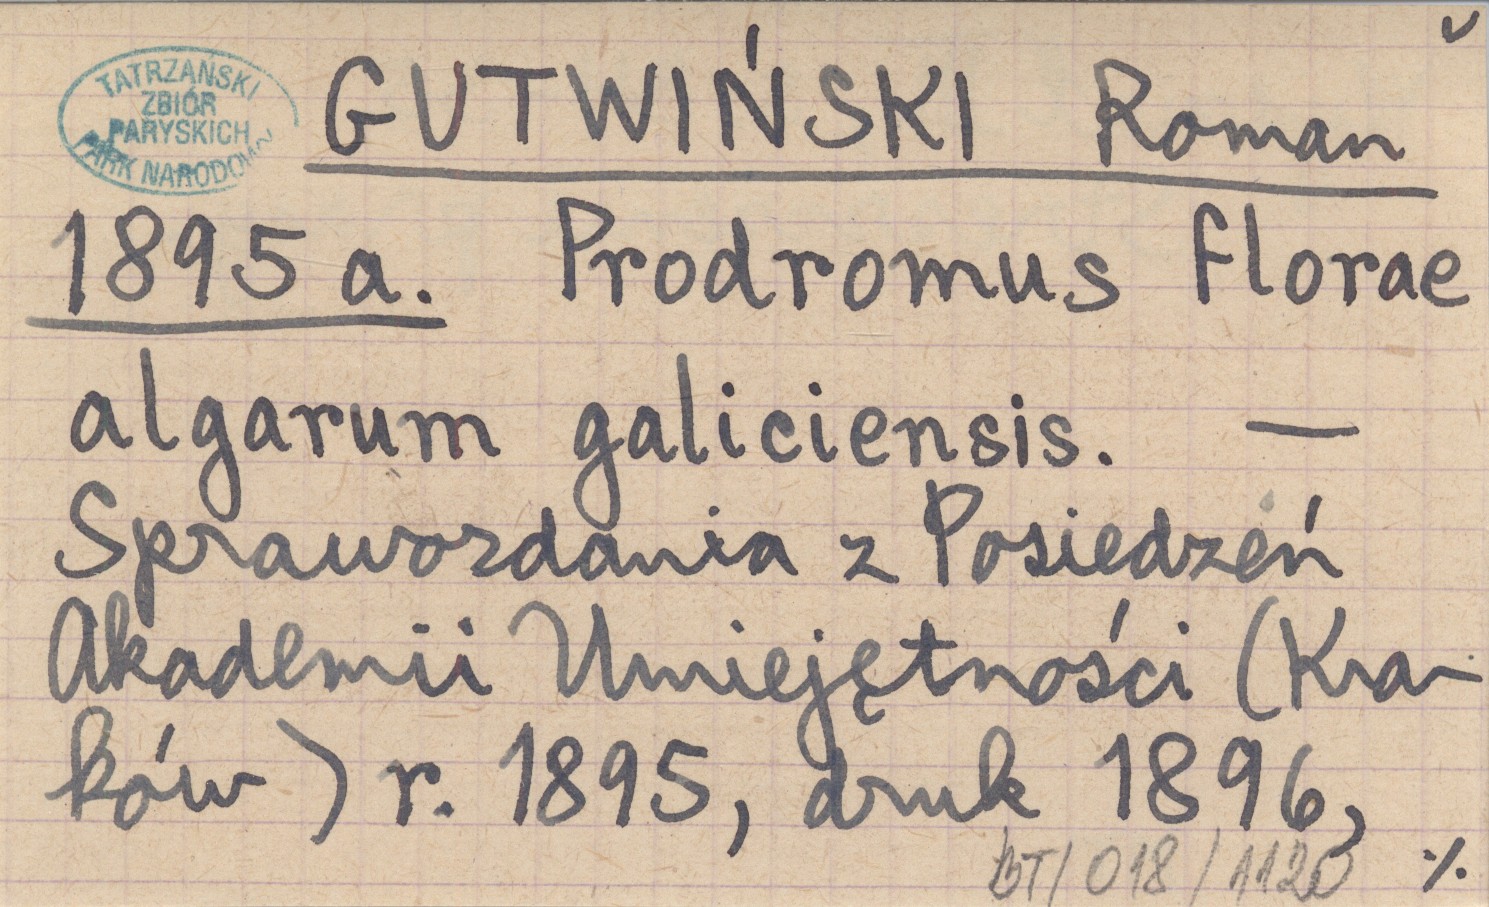 TATRZAŃSKI
ZBIÓR
PARYSKICH
PARK NARODOWY
GUTWIŃSKI Roman
1895 a. Prodromus florae
algarum galiciensis. —
Sprawozdania z Posiedzeń
Akademii Umiejętności (Kra-
ków) r. 1895, druk 1896,
BT/018/1120 ./.